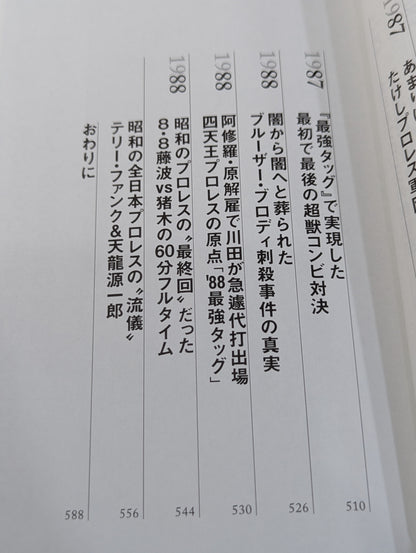 1987
あまりに
たけしプロレス軍団
1987
『最強タッグ』で実現した
最初で最後の超獣コンビ対決
510
1988
闇から闇へと葬られた
ブルーザー・ブロディ刺殺事件の真実
526
1988
阿修羅・原解雇で川田が急遽代打出場
四天王プロレスの原点「'88最強タッグ」
530
1988
昭和のプロレスの〝最終回〟だった
8・8藤波vs猪木の60分フルタイム
544
昭和の全日本プロレスの〝流儀〟
テリー・ファンク&天龍源一郎
556
おわりに
588